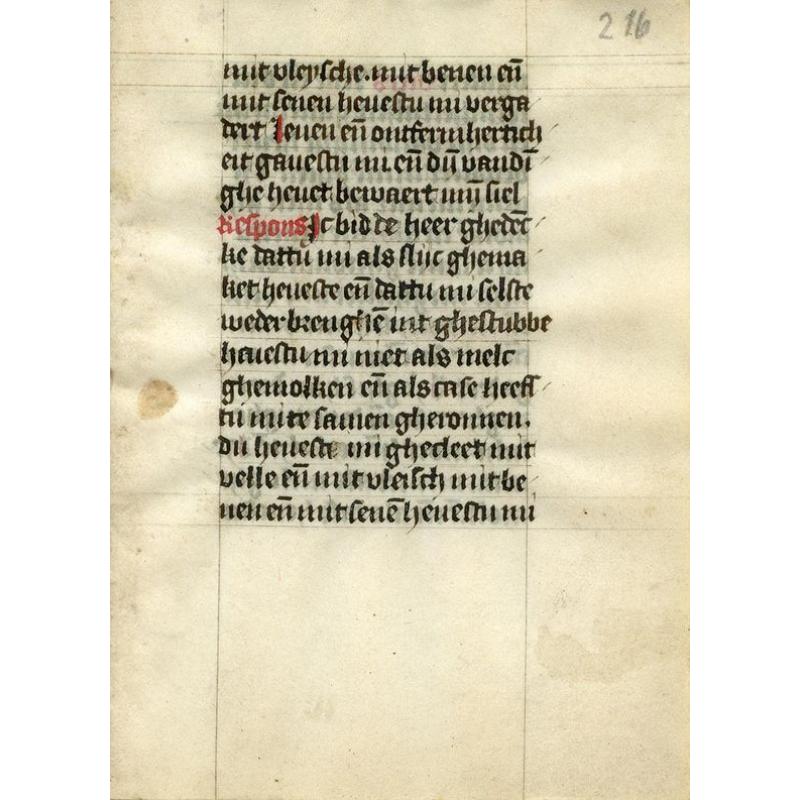 216
mit vleysche. mit benen eñ
mit senen heuestu mi verga
dert Leuen eñ ontfermhertich
eit gauestu mi. eñ dijn vandī
ghe heuet bewaert mijn siel
Respons Ic bidde heer ghedēc
ke dattu mi als slijc ghema
ket heueste eñ dattu mi selste
weder brenghē int ghestubbe
heuestu mi niet als melc
ghemolken eñ als case heefs
tu mi te samen gheronnen.
du heueste mi ghecleet mit
velle eñ mit vleisch mit be
nen eñ mit senē heuestu mi